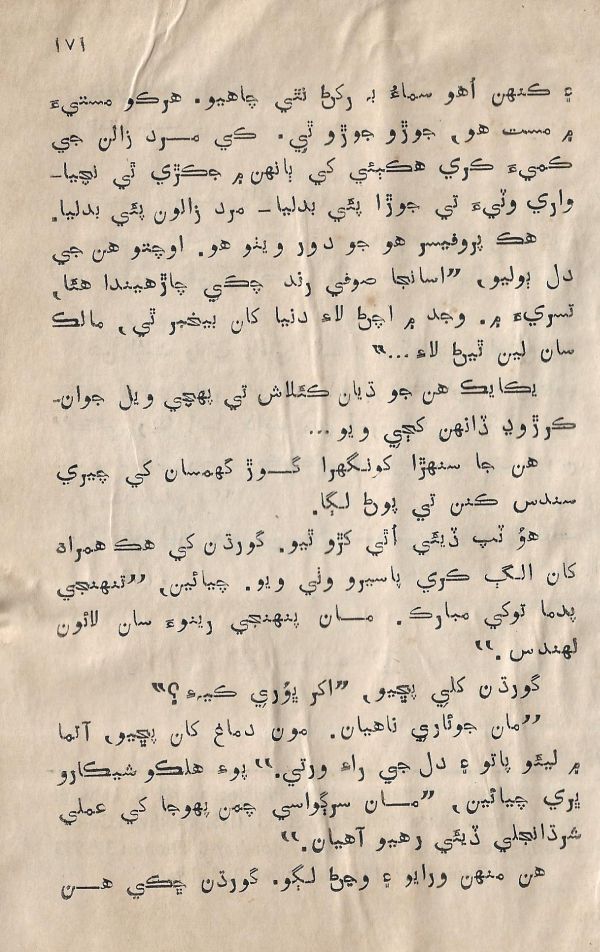 ١٧١
۽ ڪنهن اُهو سماءُ بہ رکڻ نٿي چاهيو. هرڪو مستيءَ
۾ مست هو، جوڙو جوڙو ٿي. ڪي مــرد زالن جي
ڪميءَ ڪري هڪٻئي کي ٻانهن ۾ جڪڙي ٿي نچيا-
واري وٽيءَ تي جوڙا پئي بدليا- مرد زالون پئي بدليا.
هڪ پروفيسر هو جو دور ويٺو هو. اوچتو هن جي
دل ٻوليو، ”اسانجا صوفي رند چڪي چاڙهيندا هئا،
تسريءَ ۾. وجد ۾ اچڻ لاءِ دنيا کان بيخبر ٿي، مالڪ
سان لين ٿيڻ لاءِ...“
يڪايڪ هن جو ڌيان ڪئلاش تي پهچي ويل جوان-
ڪرڙوڍ ڏانهن کڄي ويو...
هن جا سنهڙا کونگهرا گــوڙ گهمسان کي چيري
سندس ڪنن تي پوڻ لڳا.
هوُ ٽپ ڏيئي اُٿي کڙو ٿيو. گورڌن کي هڪ همراه
کان الڳ ڪري پاسيرو وٺي ويو. چيائين، ”تنهنجي
پدما توکي مبارڪ. مــان پنهنجي رينوءَ سان لائون
لهندس.“
گورڌن کلي پڇيو، ”اکر پؤري ڪيہء؟“
”مان جوئاري ناهيان. مون دماغ کان پڇيو، آتما
۾ ليئو پاتو ۽ دل جي راءِ ورتي.“ پوءِ هلڪو شيڪارو
ڀري چيائين، ”مــان سرڳواسي چمن پهوجا کي عملي
شرڌانجلي ڏيئي رهيو آهيان.“
هن منهن ورايو ۽ وڃڻ لڳو. گورڌن ڇڪي هــن